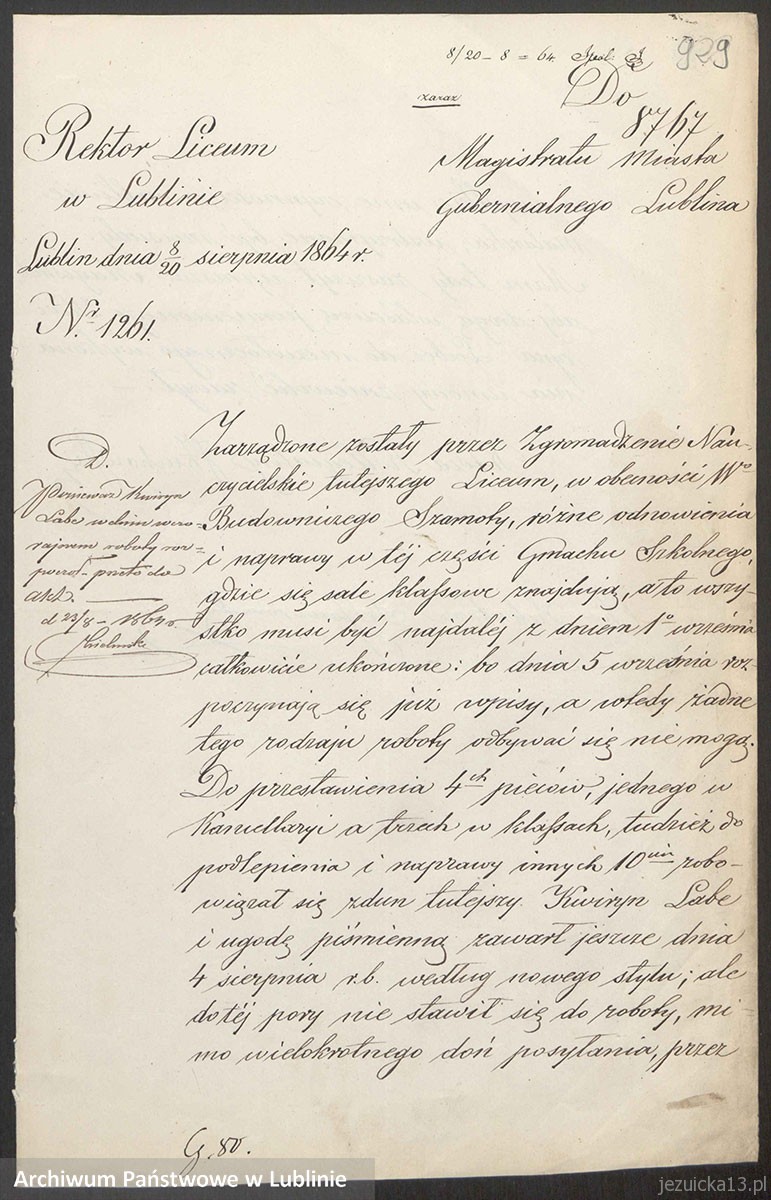 8/20 – 8 = 64.
929
zaraz
Do
8767
Rektor Liceum
w Lublinie
Magistratu Miasta
Gubernialnego Lublina
Lublin dnia 8/20 sierpnia 1864 r.
N.r 1261.
Zarządzone zostały przez Zgromadzenie Nau-
czycielskie tutejszego Liceum, w obecności Wo
Budowniczego Szamoty, różne odnowienia
i naprawy w téj części Gmachu Szkolnego,
gdzie się sale klassowe znajdują, a to wszy-
stko musi być najdaléj z dniem 1o września
całkowicie ukończone: bo dnia 5 września roz-
poczynają się już wpisy, a wtedy żadne
tego rodzaju roboty odbywać się nie mogą.
Do przestawienia 4ch pieców, jednego w
Kancellaryi a trzech w klassach, tudzież do
podlepienia i naprawy innych 10iu zobo-
wiązał się zdun tutejszy Kwiryn Labe
i ugodę piśmienną zawarł jeszcze dnia
4 sierpnia r.b. według nowego stylu; ale
do téj pory nie stawił się do roboty, mi-
mo wielokrotnego doń posyłania, przez
D.
Ponieważ Kwiryn
Labe w dniu wczo-
rajszem roboty roz-
począł – przeto do
akt. —
d 23/8 – 1864 r
G. 80.
Archiwum Państwowe w Lublinie
jezuicka13.pl